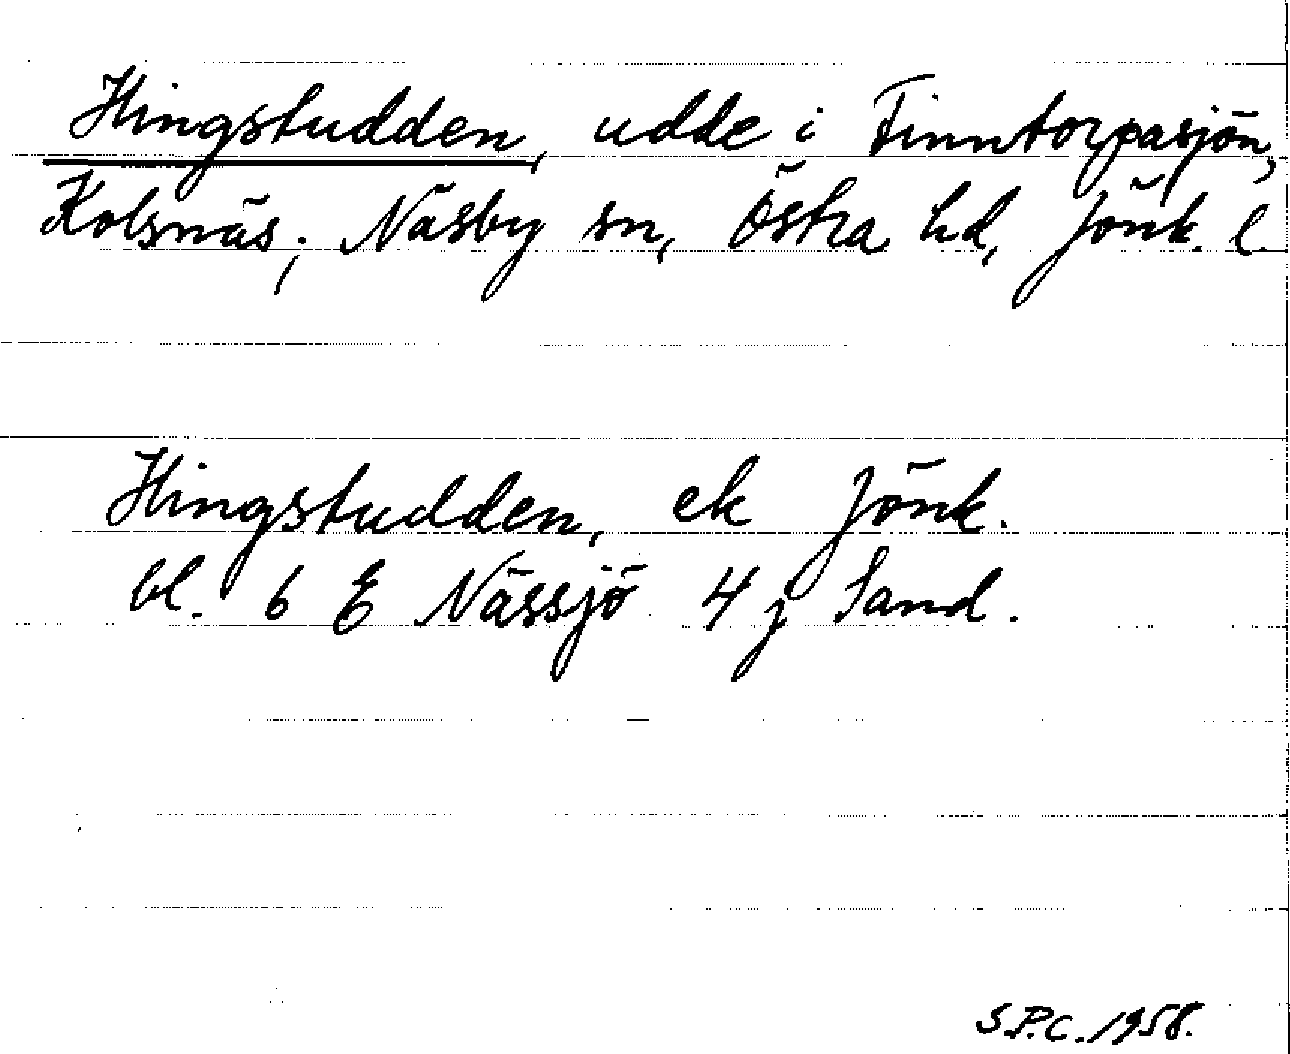 Hingstudden, udde i Finntorpasjön,
Kolsnäs, Näsby sn, Östra hd, Jönk. l.
Hingstudden, ek Jönk.
bl. 6 E Nässjö 4 j Sand.
S.P.C. 1958.